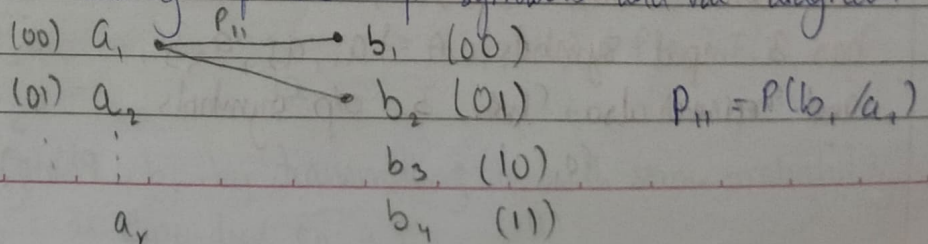 P₁₁
(00) a₁ b₁ (00)
(01) a₂ b₂ (01) P₁₁ = P(b₁/a₁)
⋮ ⋮ b₃ (10)
aᵣ b₄ (11)